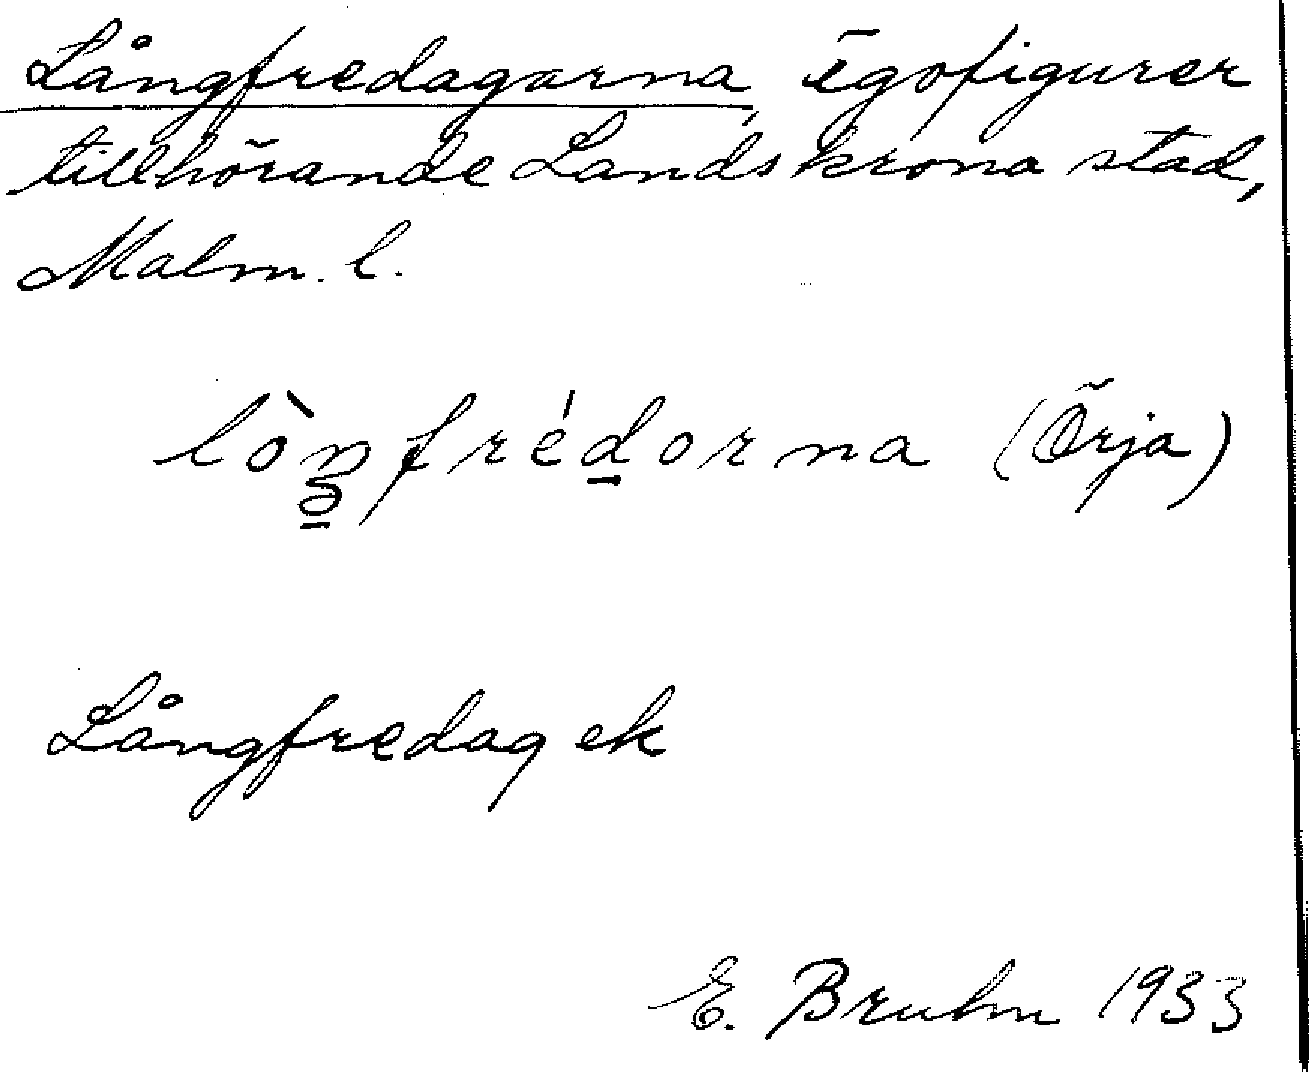 Långfredagarna, ägofigurer
tillhörande Landskrona stad,
Malm. l.
lòŋfrédorna (Örja)
Långfredag ek
E. Bruhn 1933